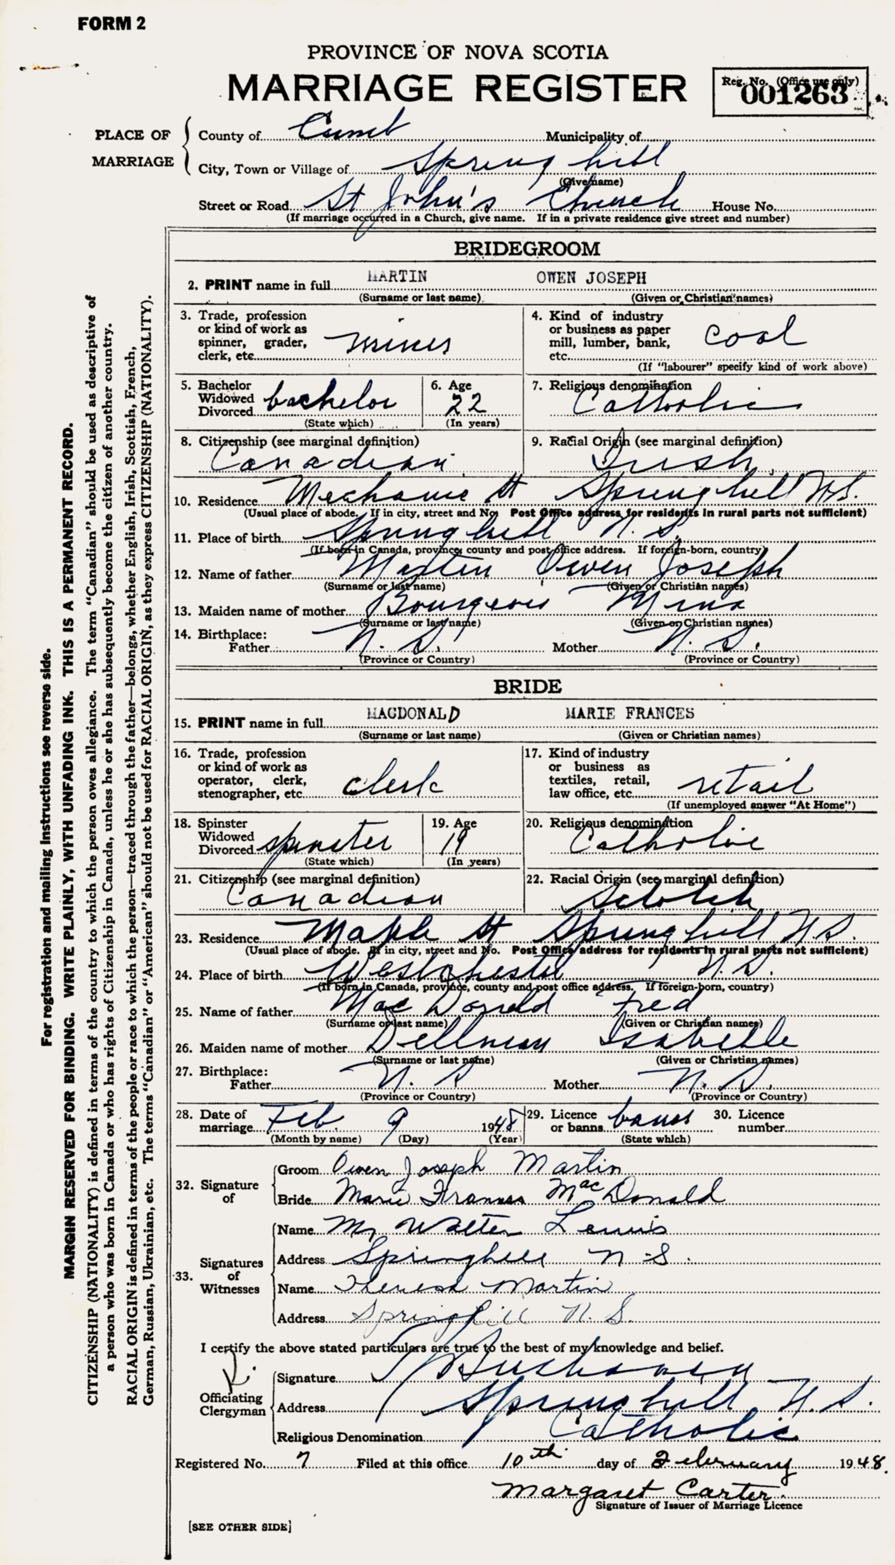 FORM 2
PROVINCE OF NOVA SCOTIA
MARRIAGE REGISTER
Reg. No. (Office use only)
001263
PLACE OF MARRIAGE
County of Cumb Municipality of
City, Town or Village of Spring hill
(Give name)
Street or Road St John's Church House No.
(If marriage occurred in a Church, give name. If in a private residence give street and number)
BRIDEGROOM
2. PRINT name in full MARTIN OWEN JOSEPH
(Surname or last name) (Given or Christian names)
3. Trade, profession or kind of work as spinner, grader, clerk, etc. miner
4. Kind of industry or business as paper mill, lumber, bank, etc. coal
(If "labourer" specify kind of work above)
5. Bachelor Widowed Divorced bachelor
(State which)
6. Age 22
(In years)
7. Religious denomination Catholic
8. Citizenship (see marginal definition) Canadian
9. Racial Origin (see marginal definition) Irish
10. Residence Mechanic St Springhill N.S.
(Usual place of abode. If in city, street and No. Post Office address for residents in rural parts not sufficient)
11. Place of birth Springhill N.S.
(If born in Canada, province, county and post office address. If foreign-born, country)
12. Name of father Martin Owen Joseph
(Surname or last name) (Given or Christian names)
13. Maiden name of mother Bourgeois Mina
(Surname or last name) (Given or Christian names)
14. Birthplace:
Father N.S. Mother N.S.
(Province or Country) (Province or Country)
BRIDE
15. PRINT name in full MACDONALD MARIE FRANCES
(Surname or last name) (Given or Christian names)
16. Trade, profession or kind of work as operator, clerk, stenographer, etc. clerk
17. Kind of industry or business as textiles, retail, law office, etc. retail
(If unemployed answer "At Home")
18. Spinster Widowed Divorced spinster
(State which)
19. Age 19
(In years)
20. Religious denomination Catholic
21. Citizenship (see marginal definition) Canadian
22. Racial Origin (see marginal definition) Scotch
23. Residence Maple St Springhill N.S.
(Usual place of abode. If in city, street and No. Post Office address for residents in rural parts not sufficient)
24. Place of birth Westchester N.S.
(If born in Canada, province, county and post office address. If foreign-born, country)
25. Name of father MacDonald Fred
(Surname or last name) (Given or Christian names)
26. Maiden name of mother Dellman Isabelle
(Surname or last name) (Given or Christian names)
27. Birthplace:
Father N.S Mother N.S.
(Province or Country) (Province or Country)
28. Date of marriage Feb. 9 1948
(Month by name) (Day) (Year)
29. Licence or banns banns
(State which)
30. Licence number
32. Signature of
Groom Owen Joseph Martin
Bride Marie Frances MacDonald
33. Signatures of Witnesses
Name Walter Lewis
Address Springhill N-S.
Name Theresa Martin
Address Springhill N.S.
I certify the above stated particulars are true to the best of my knowledge and belief.
Officiating Clergyman
Signature Buchanan
Address Springhill N.S.
Religious Denomination Catholic
Registered No. 7 Filed at this office 10th day of February 1948.
Margaret Carter
Signature of Issuer of Marriage Licence
[SEE OTHER SIDE]
For registration and mailing instructions see reverse side.
MARGIN RESERVED FOR BINDING. WRITE PLAINLY, WITH UNFADING INK. THIS IS A PERMANENT RECORD.
CITIZENSHIP (NATIONALITY) is defined in terms of the country to which the person owes allegiance. The term "Canadian" should be used as descriptive of
a person who was born in Canada or who has rights of Citizenship in Canada, unless he or she has subsequently become the citizen of another country.
RACIAL ORIGIN is defined in terms of the people or race to which the person—traced through the father—belongs, whether English, Irish, Scottish, French,
German, Russian, Ukrainian, etc. The terms "Canadian" or "American" should not be used for RACIAL ORIGIN, as they express CITIZENSHIP (NATIONALITY).